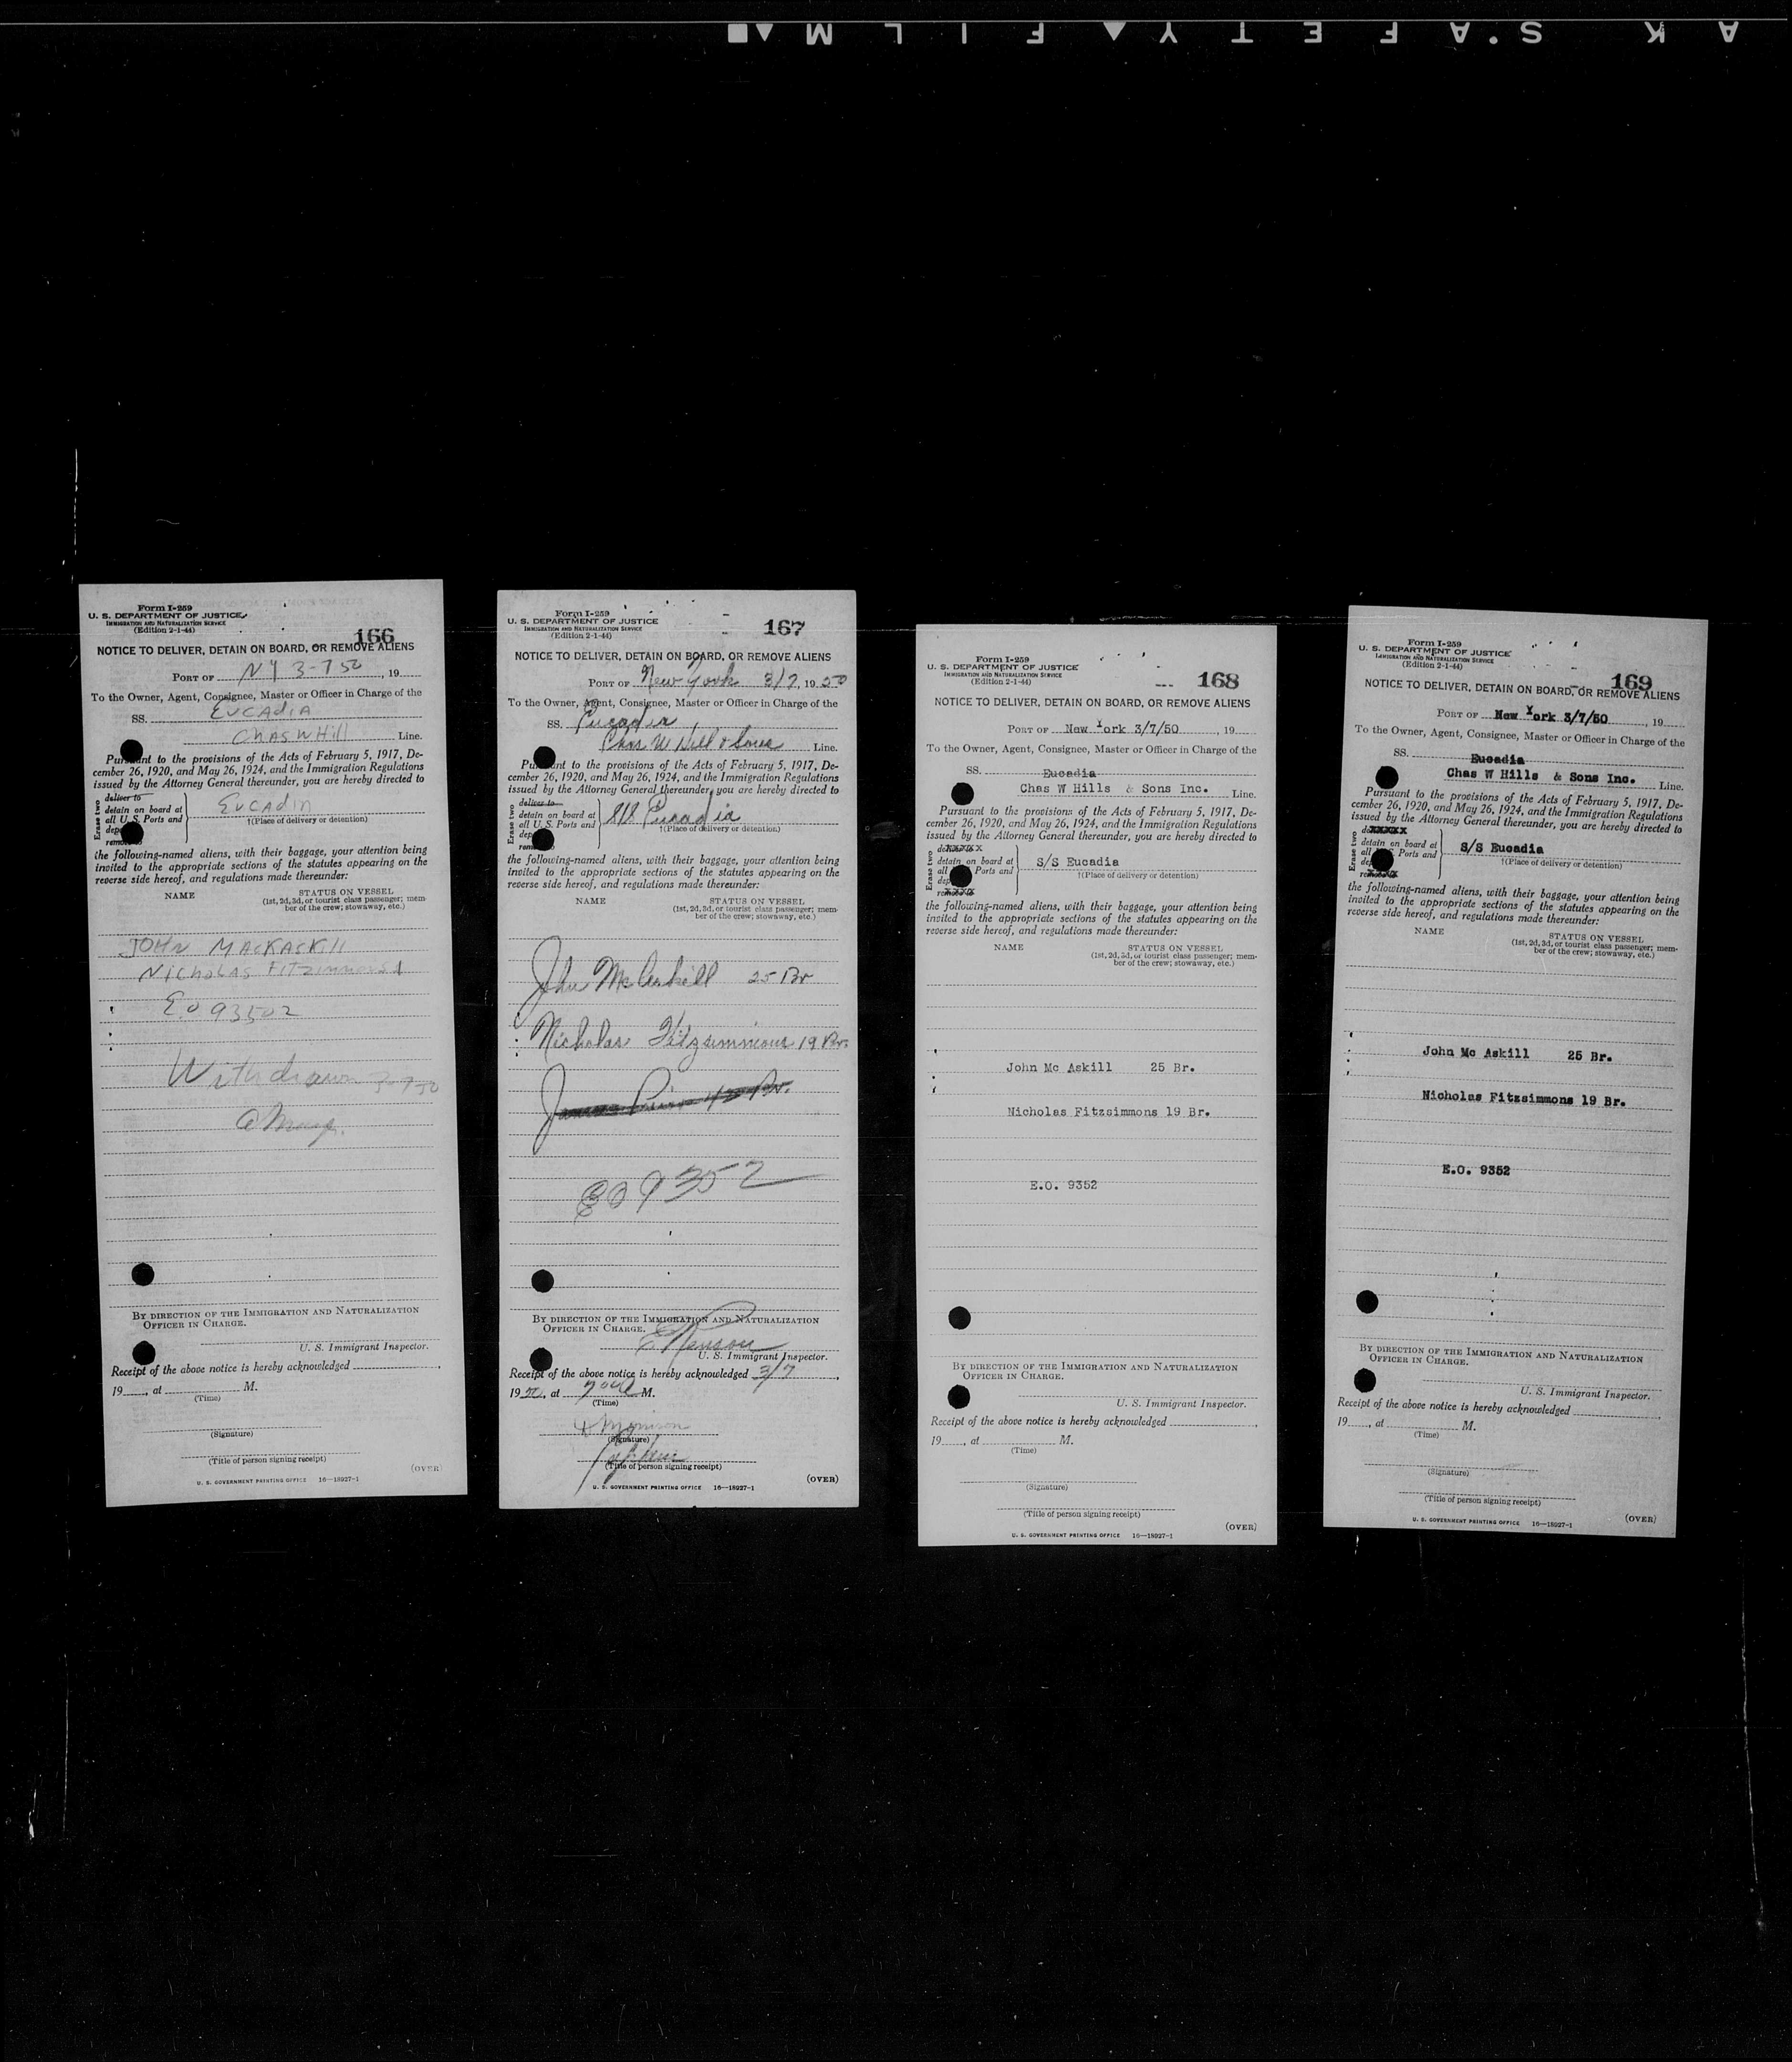 A K S'AFETY FILM
Form I-259
U. S. DEPARTMENT OF JUSTICE
IMMIGRATION AND NATURALIZATION SERVICE
(Edition 2-1-44)
166
NOTICE TO DELIVER, DETAIN ON BOARD, OR REMOVE ALIENS
PORT OF NY 3-7 50, 19
To the Owner, Agent, Consignee, Master or Officer in Charge of the
SS. EUCAdiA
ChAS W Hill Line.
Pursuant to the provisions of the Acts of February 5, 1917, De-
cember 26, 1920, and May 26, 1924, and the Immigration Regulations
issued by the Attorney General thereunder, you are hereby directed to
Erase two
deliver to
detain on board at
all U. S. Ports and
dep
remove
EUCAdiA
†(Place of delivery or detention)
the following-named aliens, with their baggage, your attention being
invited to the appropriate sections of the statutes appearing on the
reverse side hereof, and regulations made thereunder:
NAME STATUS ON VESSEL
(1st, 2d, 3d, or tourist class passenger; mem-
ber of the crew; stowaway, etc.)
JOHN MACKASKill
NICHOLAS FITZimmons
E.O 93502
Withdrawn 3-7-50
BY DIRECTION OF THE IMMIGRATION AND NATURALIZATION
OFFICER IN CHARGE.
U. S. Immigrant Inspector.
Receipt of the above notice is hereby acknowledged
19, at M.
(Time)
(Signature)
(Title of person signing receipt)
(OVER)
U. S. GOVERNMENT PRINTING OFFICE 16—18927-1
Form I-259
U. S. DEPARTMENT OF JUSTICE
IMMIGRATION AND NATURALIZATION SERVICE
(Edition 2-1-44)
167
NOTICE TO DELIVER, DETAIN ON BOARD, OR REMOVE ALIENS
PORT OF New York 3/7, 1950
To the Owner, Agent, Consignee, Master or Officer in Charge of the
SS. Eucadia
Chas W Hill & Sons Line.
Pursuant to the provisions of the Acts of February 5, 1917, De-
cember 26, 1920, and May 26, 1924, and the Immigration Regulations
issued by the Attorney General thereunder, you are hereby directed to
Erase two
deliver to
detain on board at
all U. S. Ports and
dep
rem
S/S Eucadia
†(Place of delivery or detention)
the following-named aliens, with their baggage, your attention being
invited to the appropriate sections of the statutes appearing on the
reverse side hereof, and regulations made thereunder:
NAME STATUS ON VESSEL
(1st, 2d, 3d, or tourist class passenger; mem-
ber of the crew; stowaway, etc.)
John McAskill 25 Br
Nicholas Fitzsimmons 19 Br.
EO 9352
BY DIRECTION OF THE IMMIGRATION AND NATURALIZATION
OFFICER IN CHARGE.
U. S. Immigrant Inspector.
Receipt of the above notice is hereby acknowledged 3/7,
1950, at 700 A M.
(Time)
(Signature)
(Title of person signing receipt)
(OVER)
U. S. GOVERNMENT PRINTING OFFICE 16—18927-1
Form I-259
U. S. DEPARTMENT OF JUSTICE
IMMIGRATION AND NATURALIZATION SERVICE
(Edition 2-1-44)
168
NOTICE TO DELIVER, DETAIN ON BOARD, OR REMOVE ALIENS
PORT OF New York 3/7/50, 19
To the Owner, Agent, Consignee, Master or Officer in Charge of the
SS. Eucadia
Chas W Hills & Sons Inc. Line.
Pursuant to the provisions of the Acts of February 5, 1917, De-
cember 26, 1920, and May 26, 1924, and the Immigration Regulations
issued by the Attorney General thereunder, you are hereby directed to
Erase two
detain on board at
all Ports and
dep
S/S Eucadia
†(Place of delivery or detention)
the following-named aliens, with their baggage, your attention being
invited to the appropriate sections of the statutes appearing on the
reverse side hereof, and regulations made thereunder:
NAME STATUS ON VESSEL
(1st, 2d, 3d, or tourist class passenger; mem-
ber of the crew; stowaway, etc.)
John Mc Askill 25 Br.
Nicholas Fitzsimmons 19 Br.
E.O. 9352
BY DIRECTION OF THE IMMIGRATION AND NATURALIZATION
OFFICER IN CHARGE.
U. S. Immigrant Inspector.
Receipt of the above notice is hereby acknowledged
19, at M.
(Time)
(Signature)
(Title of person signing receipt)
(OVER)
U. S. GOVERNMENT PRINTING OFFICE 16—18927-1
Form I-259
U. S. DEPARTMENT OF JUSTICE
IMMIGRATION AND NATURALIZATION SERVICE
(Edition 2-1-44)
169
NOTICE TO DELIVER, DETAIN ON BOARD, OR REMOVE ALIENS
PORT OF New York 3/7/50, 19
To the Owner, Agent, Consignee, Master or Officer in Charge of the
SS. Eucadia
Chas W Hills & Sons Inc. Line.
Pursuant to the provisions of the Acts of February 5, 1917, De-
cember 26, 1920, and May 26, 1924, and the Immigration Regulations
issued by the Attorney General thereunder, you are hereby directed to
Erase two
detain on board at
all Ports and
dep
S/S Eucadia
†(Place of delivery or detention)
the following-named aliens, with their baggage, your attention being
invited to the appropriate sections of the statutes appearing on the
reverse side hereof, and regulations made thereunder:
NAME STATUS ON VESSEL
(1st, 2d, 3d, or tourist class passenger; mem-
ber of the crew; stowaway, etc.)
John Mc Askill 25 Br.
Nicholas Fitzsimmons 19 Br.
E.O. 9352
BY DIRECTION OF THE IMMIGRATION AND NATURALIZATION
OFFICER IN CHARGE.
U. S. Immigrant Inspector.
Receipt of the above notice is hereby acknowledged
19, at M.
(Time)
(Signature)
(Title of person signing receipt)
(OVER)
U. S. GOVERNMENT PRINTING OFFICE 16—18927-1